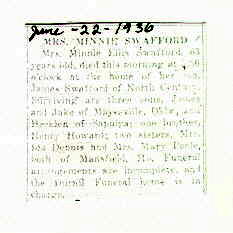 June -22- 1936
MRS. MINNIE SWAFFORD
Mrs. Minnie Ellis Swafford, 63
years old, died this morning at
o'clock at the home of her son,
James Swafford of North Century.
Surviving are three sons, James
and Jake of Maysville, Okla., and
of Sapulpa; one brother,
Henry Howard; two sisters, Mrs.
Ida Dennis and Mrs. Mary Poole,
both of Mansfield, Mo. Funeral
arrangements are incomplete, and
the Funeral home is in
charge.